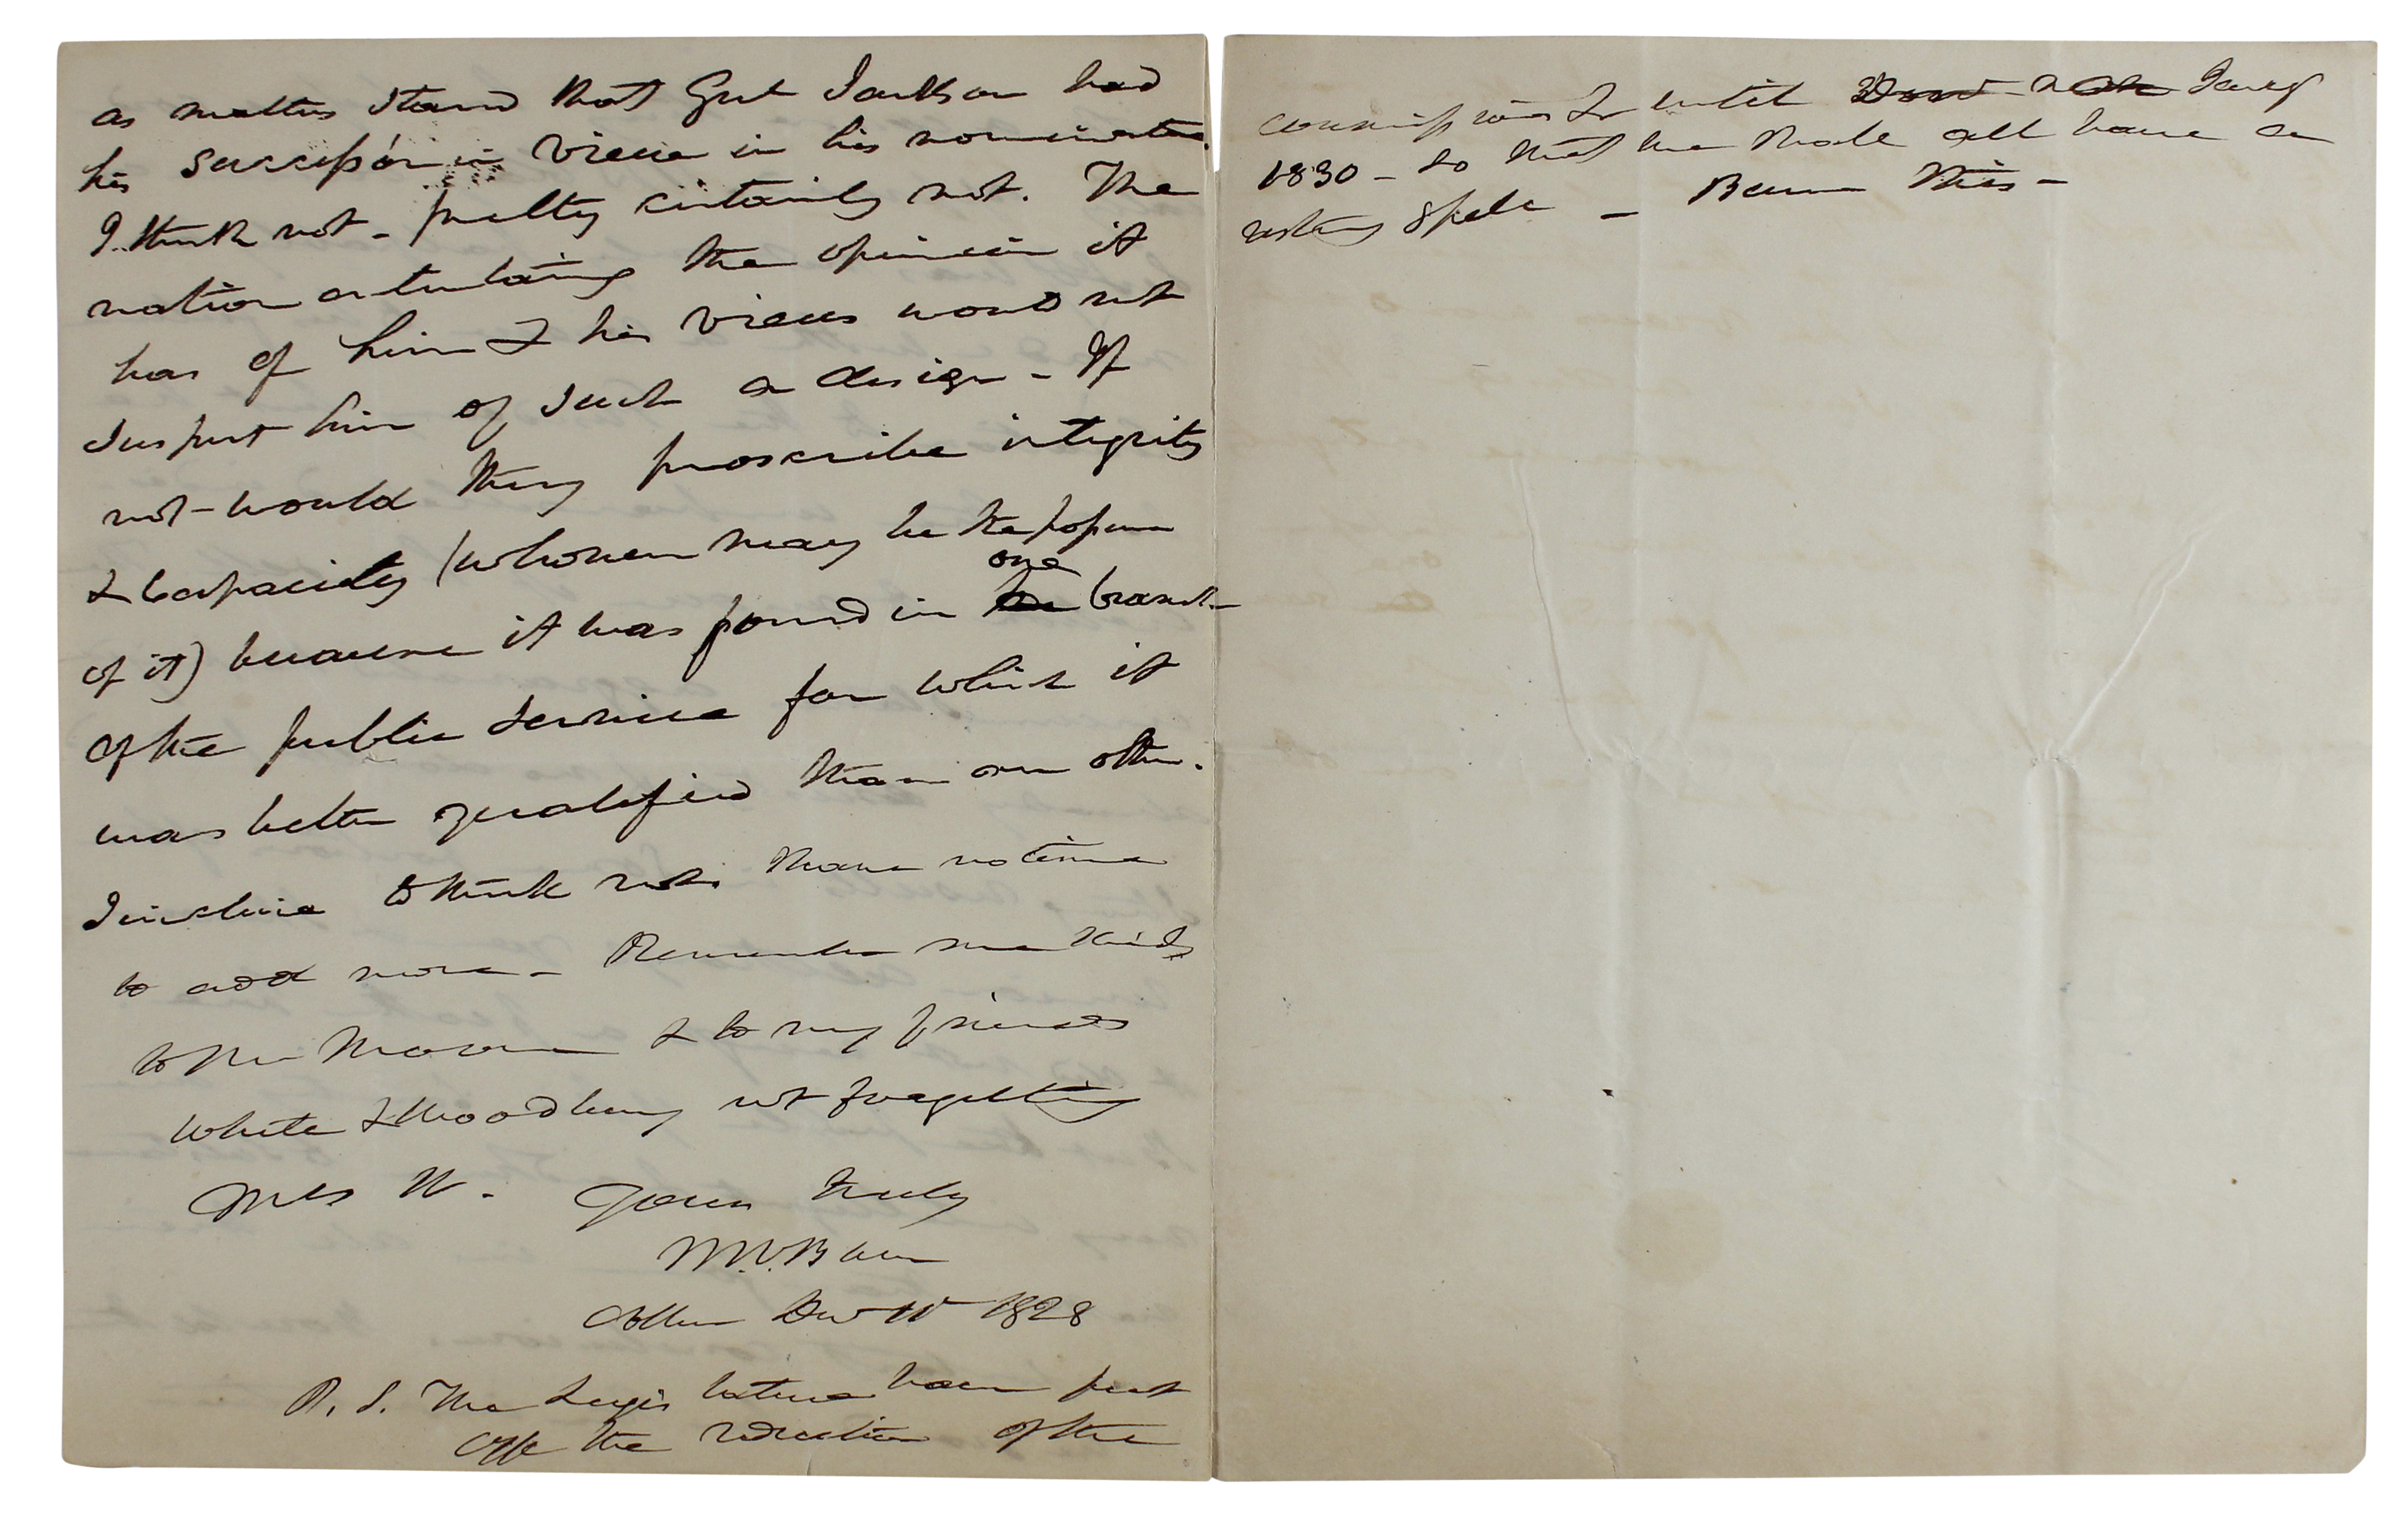 as matters stand that Genl Jackson had
his successor in view in his nomination.
I think not - pretty certainly not. The
nation entertaining the opinion it
has of him & his views would not
suspect him of such a design - If
not - would they proscribe integrity
& Capacity (whoever may be the
of it) because it was found in one branch
of the public service for which it
was better qualified than an other.
I incline to think not. I have no time
to add more - Remember me kindly
to & to my friends
White & Woodbury not forgetting
Mrs W. Yours truly
M.V.Buren
Dec 1828
P.S. The Legislature have put
off the reduction of the
until Dect next Jany
1830 - so that we shall all have a
resting spell - Burn this -